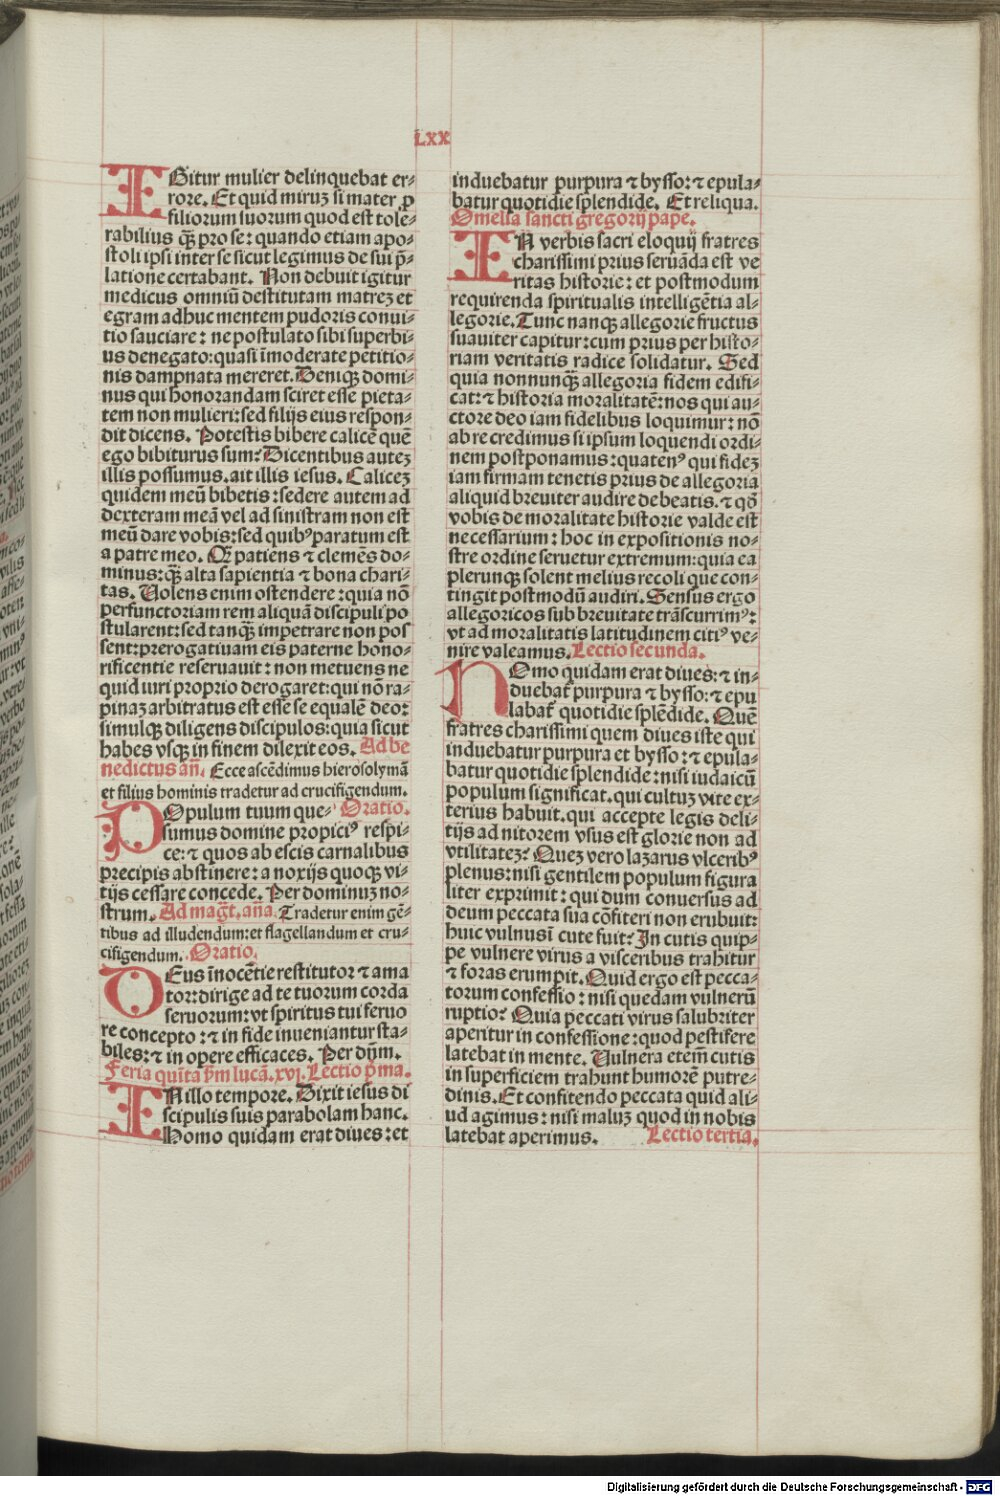 LXX
IGitur mulier delinquebat er⸗
rore. Et quid miruꝫ si mater ꝓ
filiorum suorum quod est tole⸗
rabilius qꝫ̄ pro se: quando etiam apo⸗
stoli ipsi inter se sicut legimus de sui p̄⸗
latione certabant. Non debuit igitur
medicus omniū destitutam matreꝫ et
egram adhuc mentem pudoris conui⸗
tio sauciare: ne postulato sibi superbi⸗
us denegato: quasi īmoderate petitio⸗
nis dampnata mereret. Deniqꝫ domi⸗
nus qui honorandam sciret esse pieta⸗
tem non mulieri: sed filijs eius respon⸗
dit dicens. Potestis bibere calicē quē
ego bibiturus sum? Dicentibus auteꝫ
illis possumus. ait illis iesus. Caliceꝫ
quidem meū bibetis: sedere autem ad
dexteram meā vel ad sinistram non est
meū dare vobis: sed quibꝰ paratum est
a patre meo. Qꝫ patiens ⁊ clemēs do⸗
minus: qꝫ̄ alta sapientia ⁊ bona chari⸗
tas. Uolens enim ostendere: quia nō
perfunctoriam rem aliquā discipuli po
stularent: sed tanqꝫ̄ impetrare non pos
sent: prerogatiuam eis paterne hono⸗
rificentie reseruauit: non metuens ne
quid iuri proprio derogaret: qui nō ra⸗
pinaꝫ arbitratus est esse se equalē deo:
simulqꝫ diligens discipulos: quia sicut
habes vsqꝫ in finem dilexit eos. Ad be
nedictus an̄. Ecce ascēdimus hierosolymā
et filius hominis tradetur ad crucifigendum.
POpulum tuum que⸗ Oratio.
sumus domine propiciꝰ respi⸗
ce: ⁊ quos ab escis carnalibus
precipis abstinere: a noxijs quoqꝫ vi⸗
tijs cessare concede. Per dominuꝫ no⸗
strum. Ad mag̅t. an̄a. Tradetur enim gē⸗
tibus ad illudendum: et flagellandum et cru⸗
cifigendum. Oratio.
DEus īnocētie restitutor ⁊ ama
tor: dirige ad te tuorum corda
seruorum: vt spiritus tui feruo
re concepto: ⁊ in fide inueniantur sta⸗
biles: ⁊ in opere efficaces. Per dn̄m.
Feria quīta p̄m lucā. xvj. Lectio p̄ma.
IN illo tempore. Dixit iesus di
scipulis suis parabolam hanc.
Homo quidam erat diues: et
induebatur purpura ⁊ bysso: ⁊ epula⸗
batur quotidie splendide. Et reliqua.
Omelia sancti gregorij pape.
IN verbis sacri eloquij fratres
charissimi prius seruāda est ve
ritas historie: et postmodum
requirenda spiritualis intelligētia al⸗
legorie. Tunc nanqꝫ allegorie fructus
suauiter capitur: cum prius per histo⸗
riam veritatis radice solidatur. Sed
quia nonnunqꝫ̄ allegoria fidem edifi⸗
cat: ⁊ historia moralitatē: nos qui au⸗
ctore deo iam fidelibus loquimur: nō
ab re credimus si ipsum loquendi ordi⸗
nem postponamus: quatenꝰ qui fideꝫ
iam firmam tenetis prius de allegoria
aliquid breuiter audire debeatis. ⁊ qō
vobis de moralitate historie valde est
necessarium: hoc in expositionis no⸗
stre ordine seruetur extremum: quia ea
plerunqꝫ solent melius recoli que con⸗
tingit postmodū audiri. Sensus ergo
allegoricos sub breuitate trāscurrimꝰ:
vt ad moralitatis latitudinem citiꝰ ve⸗
nire valeamus. Lectio secunda.
HOmo quidam erat diues: ⁊ in⸗
duebat̄ purpura ⁊ bysso: ⁊ epu
labat̄ quotidie splēdide. Quē
fratres charissimi quem diues iste qui
induebatur purpura et bysso: ⁊ epula⸗
batur quotidie splendide: nisi iudaicū
populum significat. qui cultuꝫ vite ex⸗
terius habuit. qui accepte legis deli⸗
tijs ad nitorem vsus est glorie non ad
vtilitateꝫ? Queꝫ vero lazarus vlceribꝰ
plenus: nisi gentilem populum figura
liter exprimit: qui dum conuersus ad
deum peccata sua cōfiteri non erubuit:
huic vulnusī cute fuit? In cutis quip⸗
pe vulnere virus a visceribus trahitur
⁊ foras erumpit. Quid ergo est pecca⸗
torum confessio: nisi quedam vulnerū
ruptio? Quia peccati virus salubriter
aperitur in confessione: quod pestifere
latebat in mente. Uulnera etem̄ cutis
in superficiem trahunt humorē putre⸗
dinis. Et confitendo peccata quid ali⸗
ud agimus: nisi maluꝫ quod in nobis
latebat aperimus. Lectio tertia.
Digitalisierung gefördert durch die Deutsche Forschungsgemeinschaft - DFG